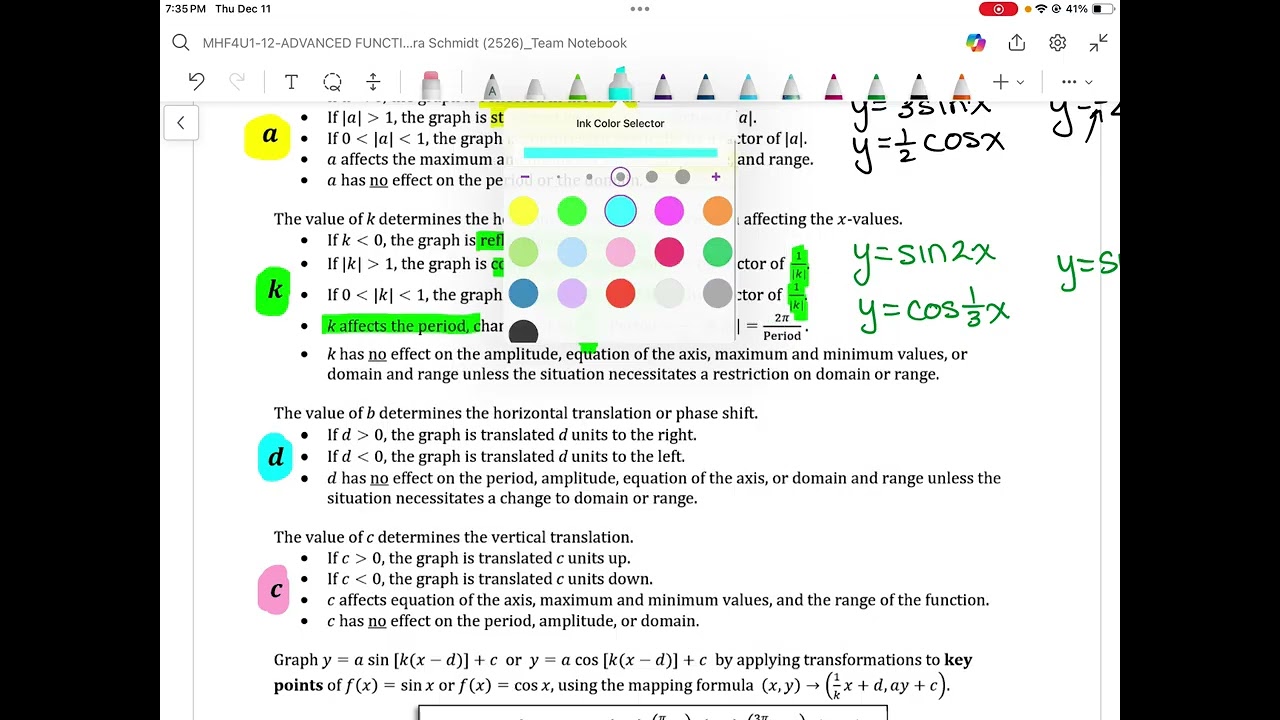 7:35 PM Thu Dec 11
41%
MHF4U1-12-ADVANCED FUNCTI...ra Schmidt (2526)_Team Notebook
Ink Color Selector
a
• If |a| > 1, the graph is st
of |a|.
• If 0 < |a| < 1, the graph
ctor of |a|.
• a affects the maximum an
and range.
• a has no effect on the period or the domain.
y = 3sinx
y = 1/2 cosx
The value of k determines the ho
affecting the x-values.
k
• If k < 0, the graph is refl
• If |k| > 1, the graph is co
ctor of 1/|k|.
• If 0 < |k| < 1, the graph
ctor of 1/|k|.
• k affects the period, chan
| = 2π/Period.
y = sin2x
y = s
y = cos 1/3 x
• k has no effect on the amplitude, equation of the axis, maximum and minimum values, or
domain and range unless the situation necessitates a restriction on domain or range.
The value of b determines the horizontal translation or phase shift.
d
• If d > 0, the graph is translated d units to the right.
• If d < 0, the graph is translated d units to the left.
• d has no effect on the period, amplitude, equation of the axis, or domain and range unless the
situation necessitates a change to domain or range.
The value of c determines the vertical translation.
c
• If c > 0, the graph is translated c units up.
• If c < 0, the graph is translated c units down.
• c affects equation of the axis, maximum and minimum values, and the range of the function.
• c has no effect on the period, amplitude, or domain.
Graph y = a sin [k(x − d)] + c or y = a cos [k(x − d)] + c by applying transformations to key
points of f(x) = sin x or f(x) = cos x, using the mapping formula (x, y) → (1/k x + d, ay + c).